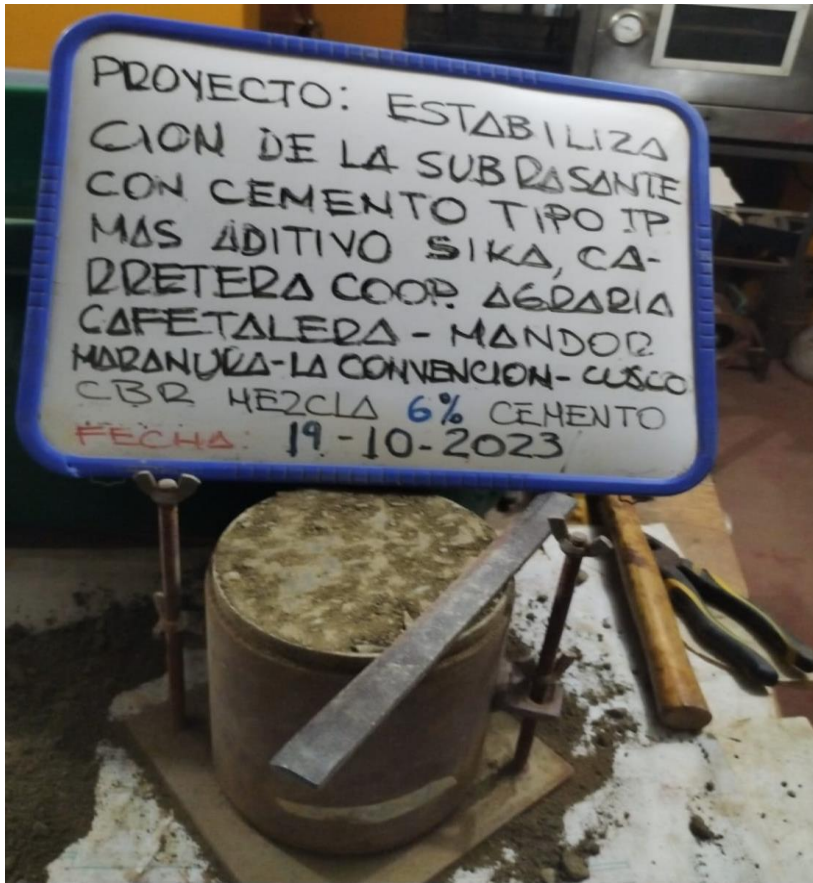 PROYECTO: ESTABILIZA
CION DE LA SUBRASANTE
CON CEMENTO TIPO IP
MAS ADITIVO SIKA, CA-
RRETERA COOP. AGRARIA
CAFETALERA - MANDOR
MARANURA-LA CONVENCION- CUSCO
CBR MEZCLA 6% CEMENTO
FECHA: 19-10-2023